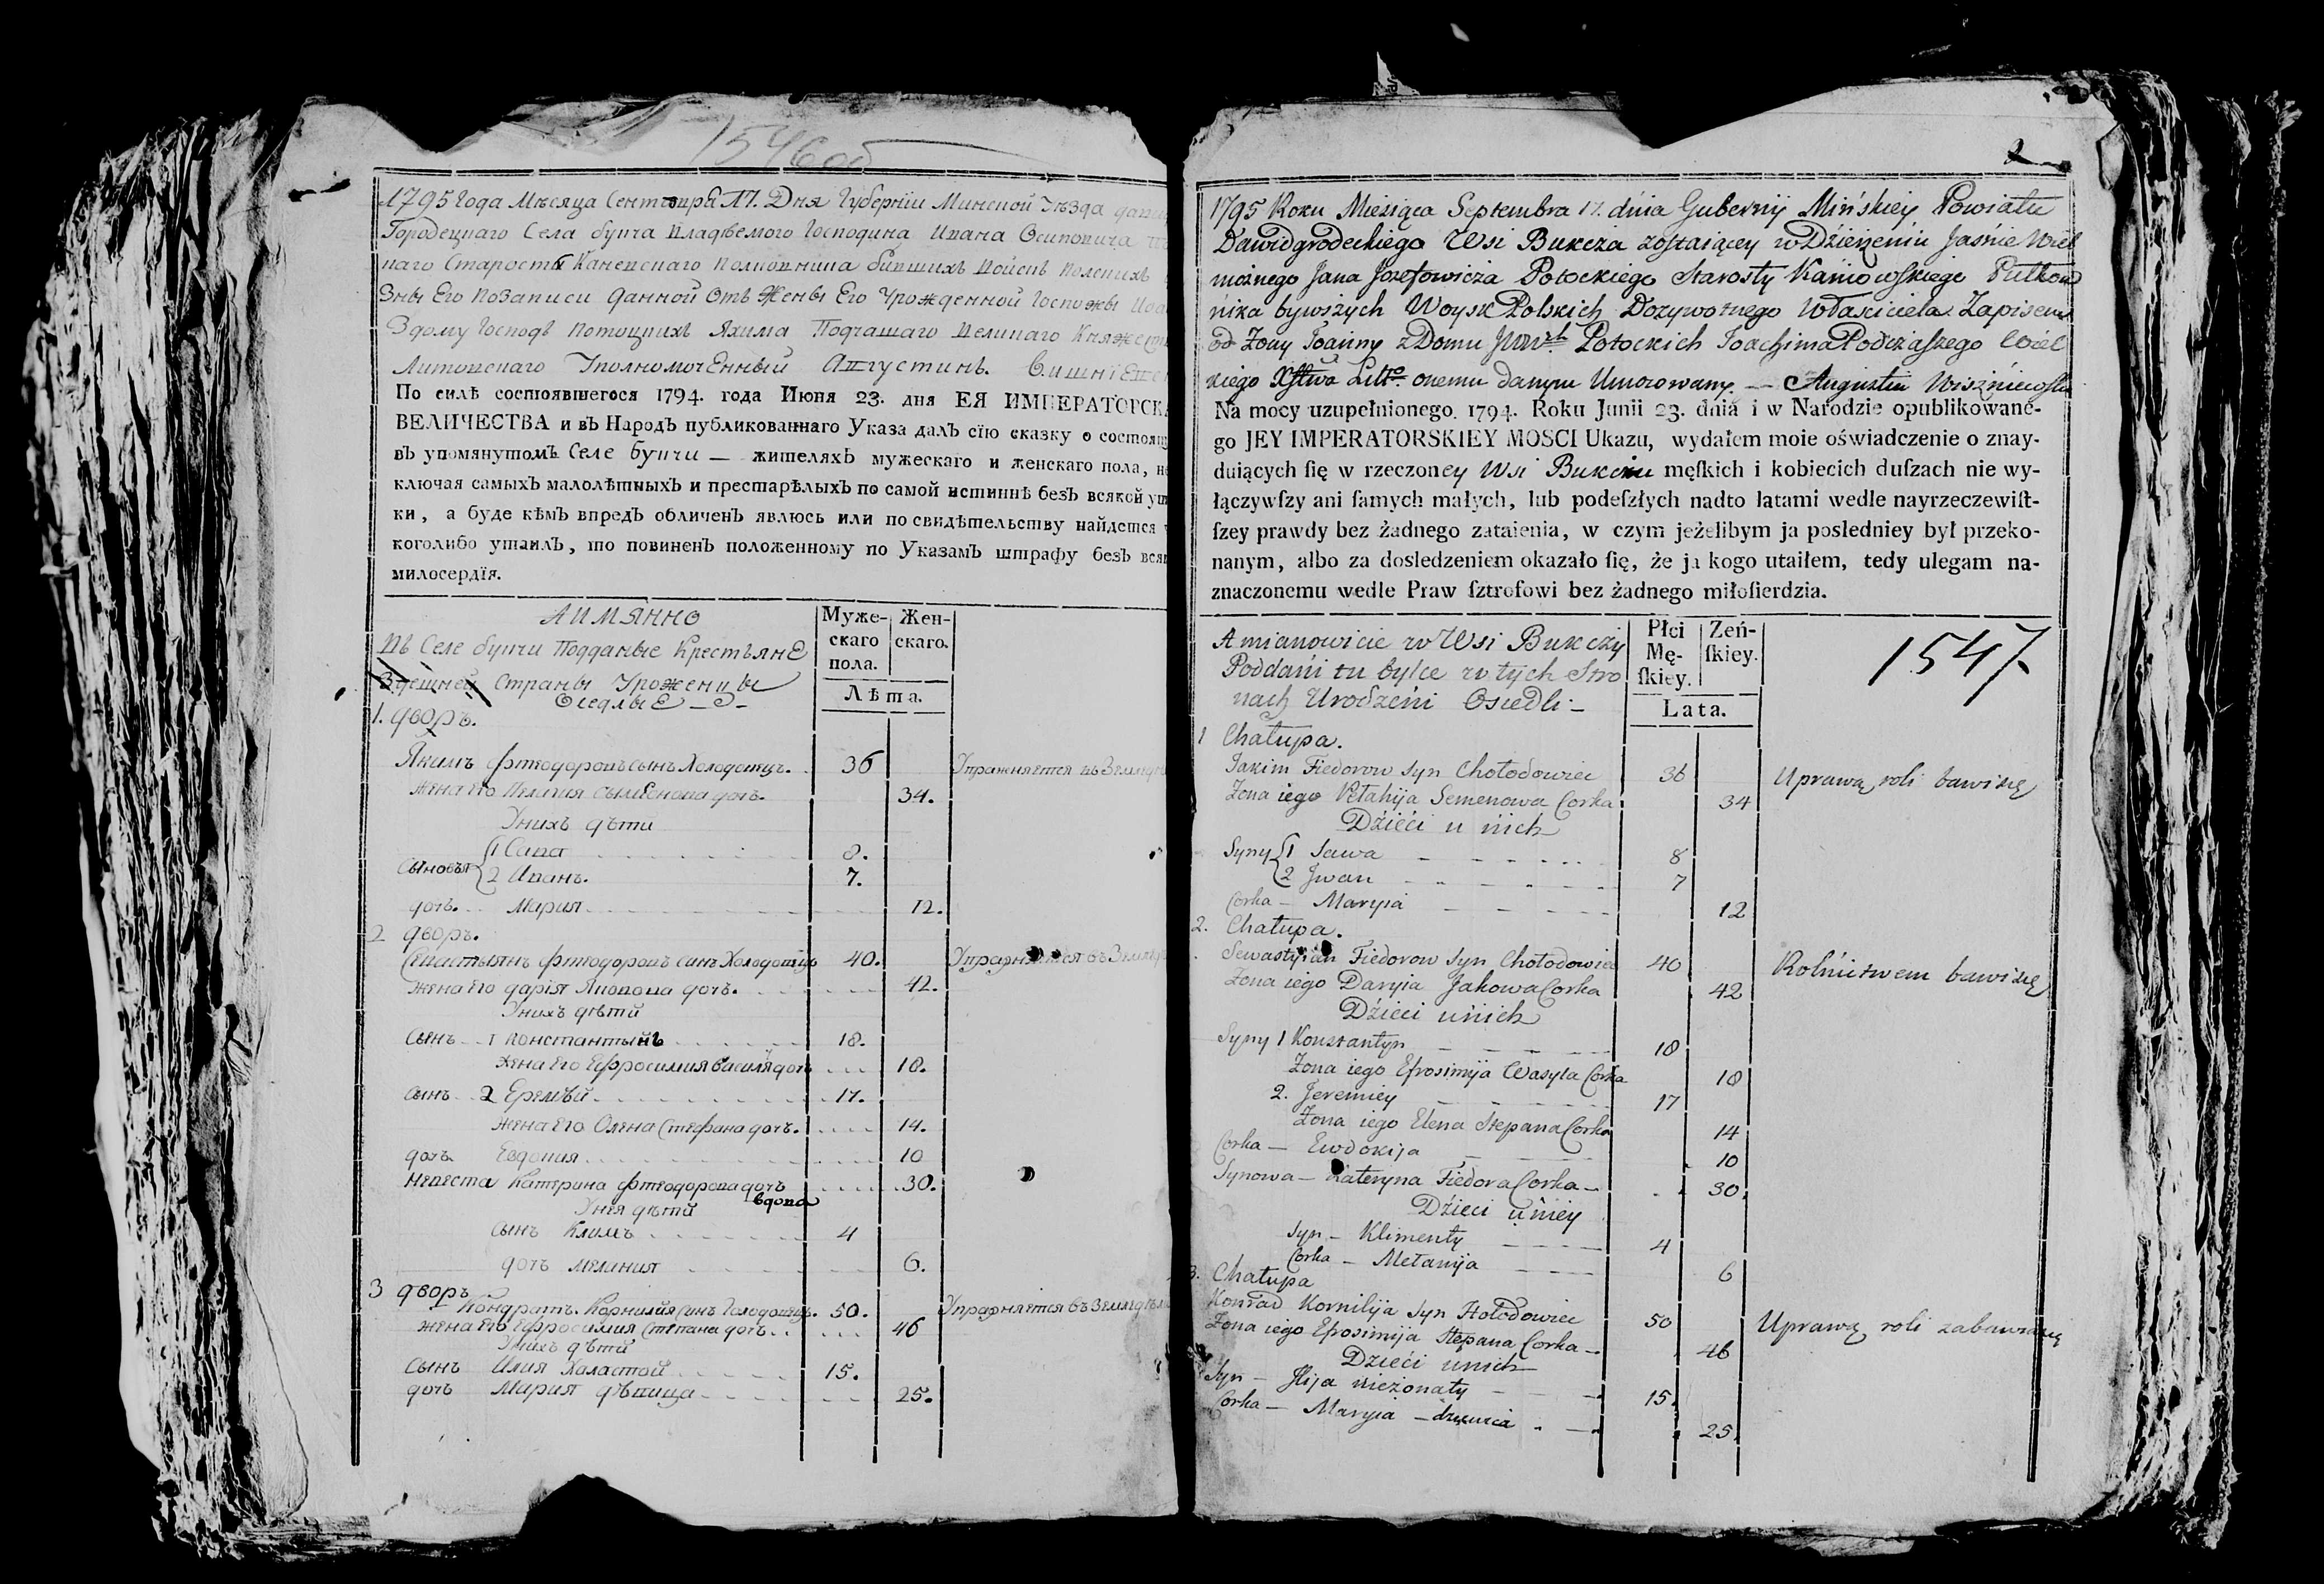 1546 об
1795 Года Мѣсяца Сентебра 17. Дня Губернїи Минской Уѣзда
Городецкаго Села букча Владѣемого Господина Ивана Осиповича
Старосты Каневскаго Полковника бившихъ Войскъ Полскихъ
Его по Записи данной отъ Жены Его Урожденной Госпожы
Здому Господъ Потоцкихъ Яхима Подчашаго Великаго
Литовскаго Уполномоченный Августинъ.
По силѣ состоявшегося 1794. года Июня 23. дня ЕЯ ИМПЕРАТОРСК
ВЕЛИЧЕСТВА и въ Народъ публикованнаго Указа далъ сїю сказку о состоящ
въ упомянутомъ Селе букчи — жителяхъ мужескаго и женскаго пола, н
ключая самыхъ малолѣтныхъ и престарѣлыхъ по самой истиннѣ безъ всякой ут
ки, а буде кѣмъ впредъ обличенъ явлюсь или по свидѣтельству найдется
коголибо утаилъ, то повиненъ положенному по Указамъ штрафу безъ вся
милосердїя.
АИМЯННО
Въ Селе букчи Подданые Крестьяне
Здешней Страны Уроженцы
Оседлые
Муже-
скаго
пола.
Жен-
скаго.
Лѣта.
1. дворъ.
Якимъ Фтеодоровъ сынъ Холодовецъ. 36 Упражняется въ
жена его Пелагия Сымѣнова дочъ. 34.
Унихъ дѣти
Сыновья 1 Сава 8.
2 Иванъ. 7.
дочъ. Мария 12.
2 дворъ.
Севастыянъ Фтеодоровъ синъ Холодовецъ 40. Упражняется въ
жена его дарія Яковова дочъ. 42.
Унихъ дѣти
Сынъ 1 Константынъ 18.
жена его Ефросимия Василя дочъ 18.
сынъ 2 Еремѣй 17.
жена его Олена Стефана дочъ. 14.
дочъ. Евдокия 10
невеста Катерина Фтеодорова дочъ 30.
вдова
Унея дѣти
сынъ Климъ 4
дочъ мелания 6.
3 дворъ
Кондратъ Корнилїя синъ Голодовецъ. 50. Упражняется въ
жена его Ефросимия Степана дочъ 46
Унихъ дѣти
Сынъ Илия Халастой 15.
дочъ Мария дѣвица 25.
2
1795 Roku Miesiąca Septembra 17. dnia Gubernij Mińskiey Powiatu
Dawidgrodeckiego Wsi Bukcża zostaiącey w Dzierżeniu Jaśnie Wiel
możnego Jana Jozefowicża Potockiego Starosty Kaniowskiego Pułkow
nika bywszych Woysk Polskich Dozywotnego Własciciela Zapisem
od Zony Joanny z Domu JWWch Potockich Joachima Podczaszego Wiel
kiego Xstwa Litto onemu danym Umocowany. — Augustin
Na mocy uzupełnionego. 1794. Roku Junii 23. dnia i w Narodzie opublikowane-
go JEY IMPERATORSKIEY MOSCI Ukazu, wydałem moie oświadczenie o znay-
duiących ſię w rzeczoney Wsi Bukcżu męſkich i kobiecich duſzach nie wy-
łączywſzy ani ſamych małych, lub podeſzłych nadto latami wedle nayrzeczewiſt-
ſzey prawdy bez żadnego zataienia, w czym jeżelibym ja posledniey był przeko-
nanym, albo za dosledzeniem okazało ſię, że ja kogo utaiłem, tedy ulegam na-
znaczonemu wedle Praw ſztrofowi bez żadnego miłoſierdzia.
A mianowicie w Wsi Bukcży
Poddani tu bylce w tych Stro
nach Urodzeni Osiedli
Płci
Mę-
ſkiey.
Zeń-
ſkiey.
Lata.
1547
1 Chałupa.
Jakim Fiedorow syn Chołodowiec 36 Uprawą roli bawi się
Zona iego Pełahija Semenowa Corka 34
Dzieci u nich
Syny 1 Sawa 8
2 Jwan 7
Corka — Maryia 12
2. Chałupa.
Sewastyian Fiedorow syn Chołodowiec 40 Rolnictwem bawi się
Zona iego Daryia Jakowa Corka 42
Dzieci unich
Syny 1 Konstantyn 18
Zona iego Efrosimija Wasyla Corka 18
2. Jeremiey 17
Zona iego Elena Stepana Corka 14
Corka — Ewdokija 10
Synowa — Kateryna Fiedora Corka — 30
Dzieci u niey
Syn — Klimenty 4
Corka — Mełanija 6
3. Chałupa
Konrad Kornilija syn Hołodowiec 50 Uprawą roli zabawia się
Zona iego Efrosimija Stepana Corka — 46
Dzieci unich
Syn — Jlija nieżonaty 15
Corka — Maryia — dziewica 25